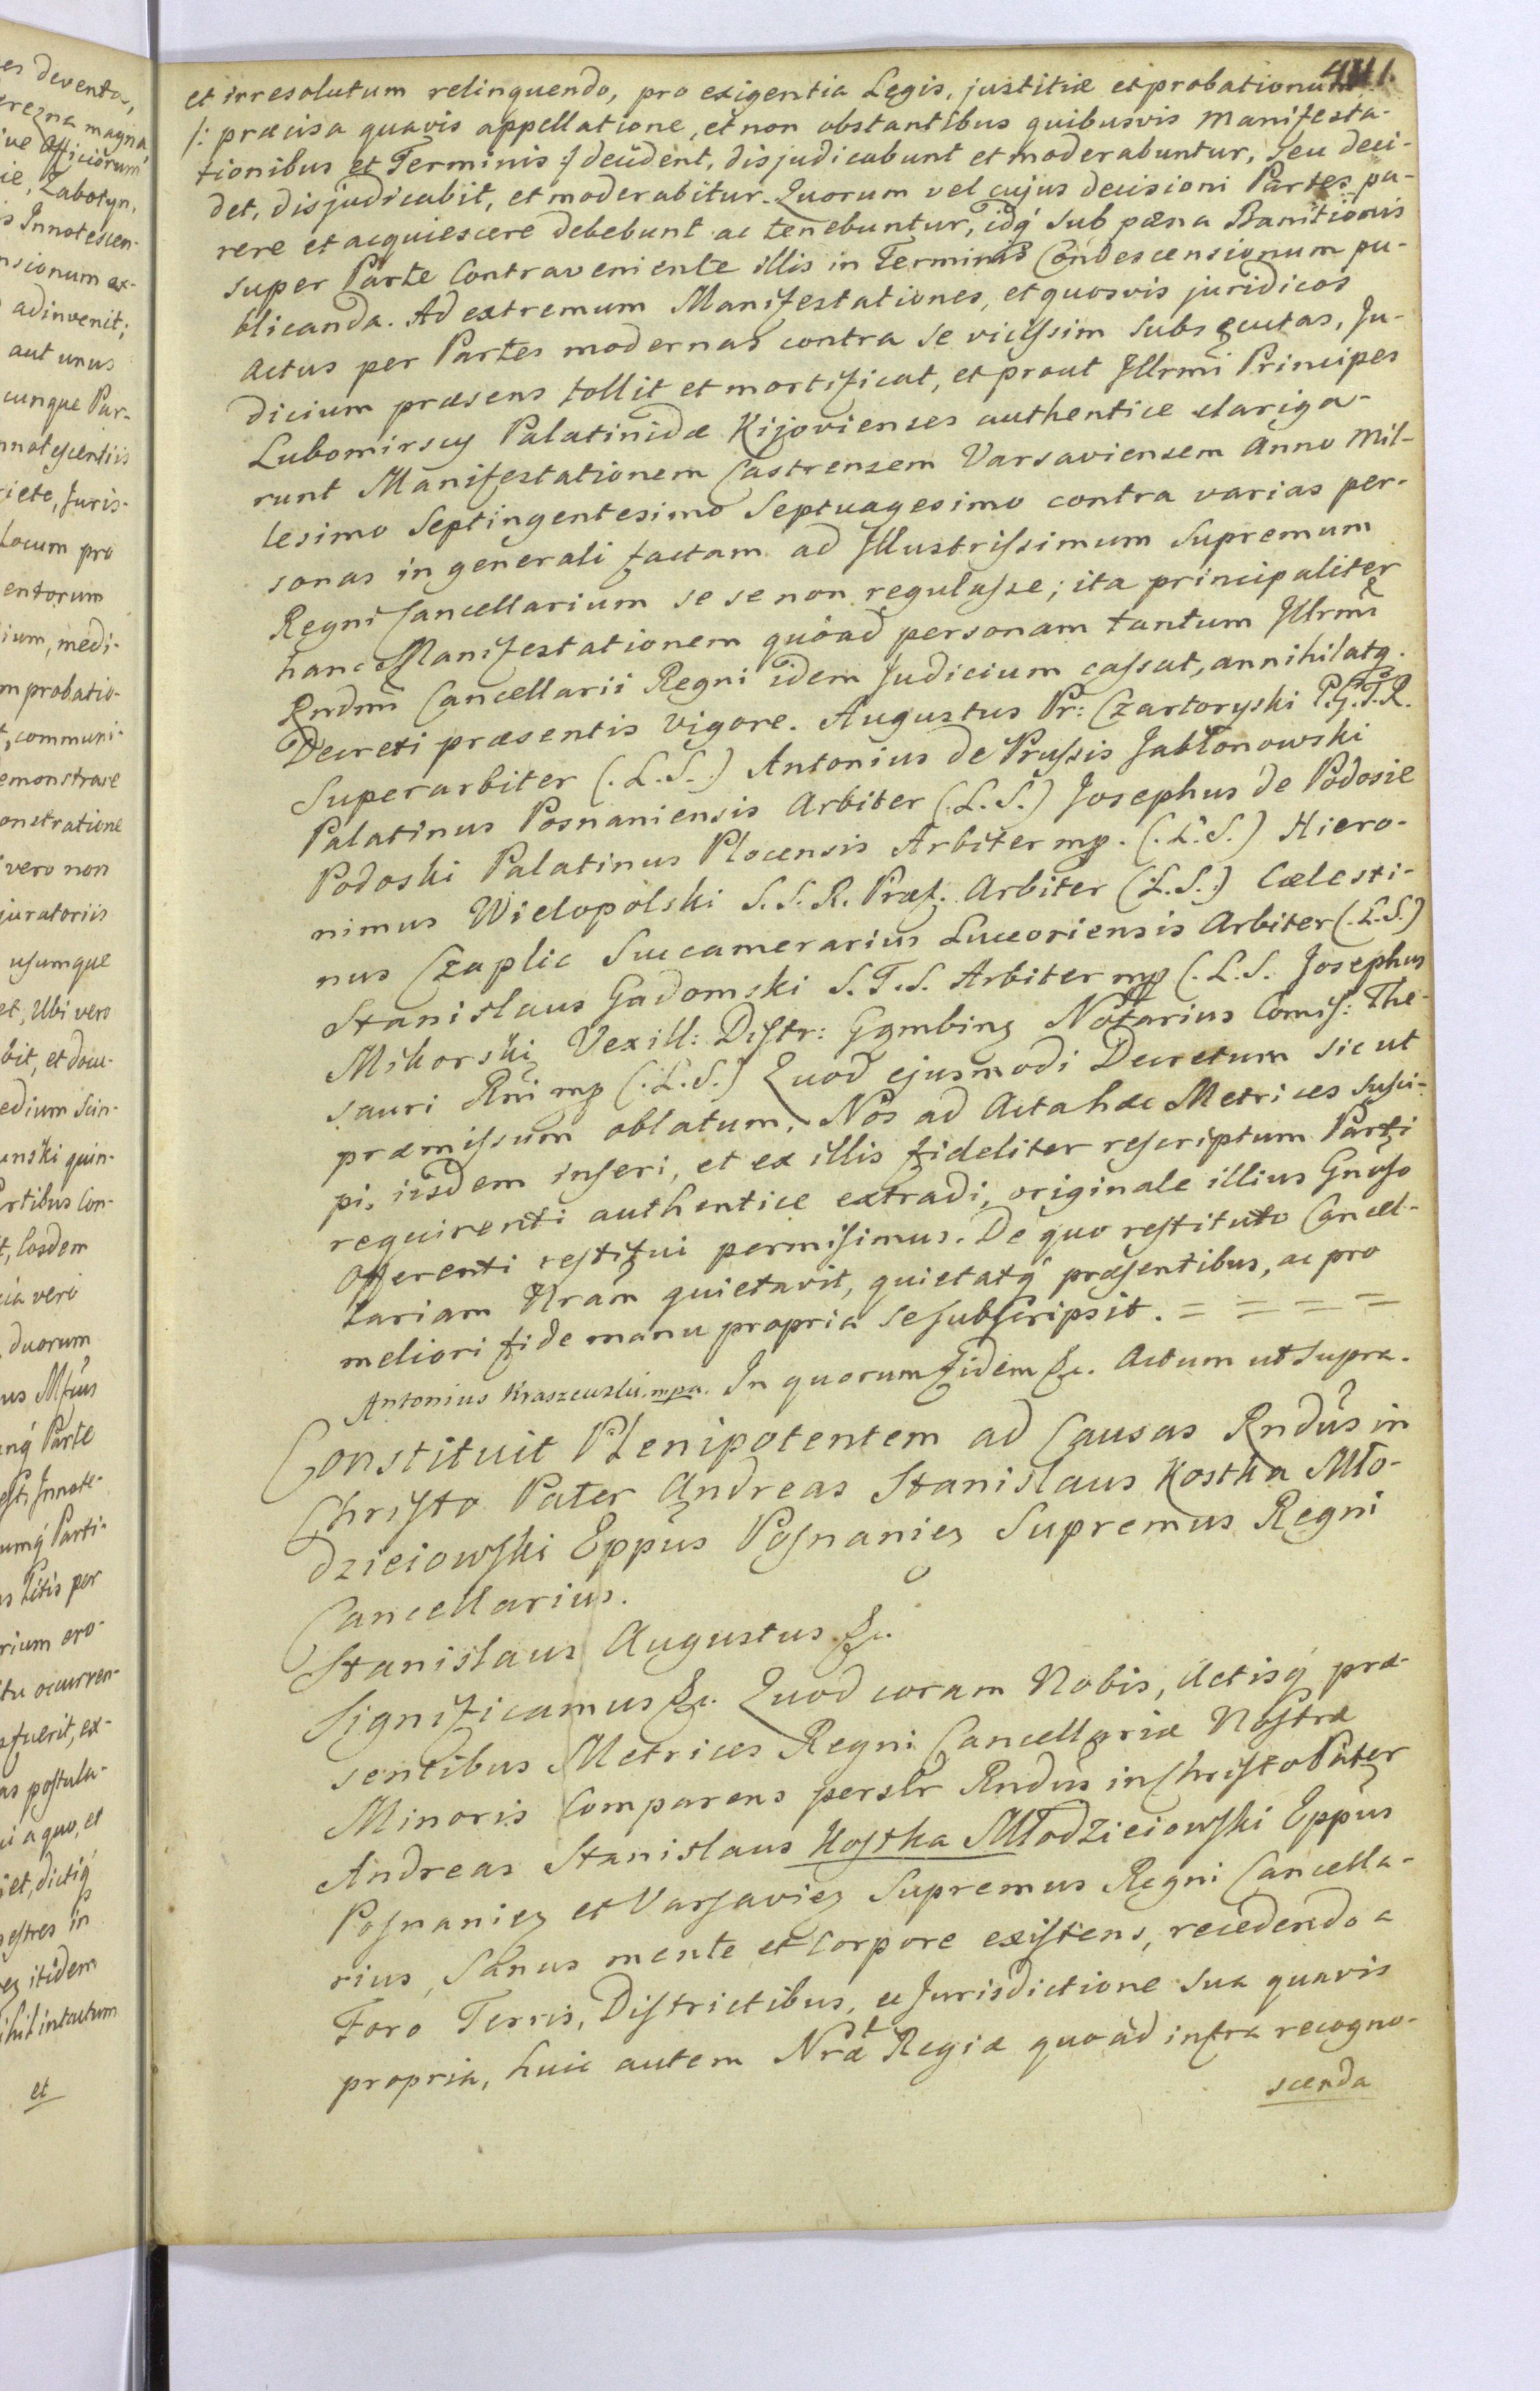 411.
et irresolutum relinquendo, pro exigentia Legis, justitiæ et probationum
/: præcisa quavis appellatione, et non obstantibus quibusvis Manifesta-
tionibus et Terminis :/ decident, disjudicabunt et moderabuntur, seu deci-
det, disjudicabit, et moderabitur. Quorum vel cujus decisioni Partes pa-
rere et acquiescere debebunt ac tenebuntur, idq́ sub pæna Banitionis
super Parte Contraveniente illis in Terminis Condescensionum pu-
blicanda. Ad extremum Manifestationes, et quosvis juridicos
Actus per Partes modernas contra se vicissim subsecutas, Ju-
dicium præsens tollit et mortificat, et prout Illrmi Principes
Lubomirscy Palatinidæ Kijovienses authentice clariga-
runt Manifestationem Castrensem Varsaviensem Anno Mil-
lesimo Septingentesimo Septuagesimo contra varias per-
sonas in generali factam ad Illustrissimum Supremum
Regni Cancellarium se se non regulasse; ita principaliter
hance Manifestationem quoad personam tantum Illrmi
Rndmi Cancellarii Regni idem Judicium cassat, annihilatq.
Decreti præsentis vigore. Augustus Pr: Czartoryski P.G.T.R.
Superarbiter (.L.S.) Antonius de Prussis Jabłonowski
Palatinus Posnaniensis Arbiter (.L.S.) Josephus de Podosie
Podoski Palatinus Plocensis Arbiter mp. (.L.S.) Hiero-
nimus Wielopolski S.S.R. Præf. Arbiter (.L.S.) Cælesti-
nus Czaplic Succamerarius Luceoriensis Arbiter (.L.S.)
Stanislaus Gadomski S.T.S. Arbiter mp (.L.S. Josephus
Mikorski Vexill: Distr: Gąmbinȝ Notarius Comis: The-
sauri Rni mp (.L.S.) Quod ejusmodi Decretum sic ut
præmissum oblatum, Nos ad Acta hæc Metrices susci-
pi, iisdem inseri, et ex illis fideliter rescriptum Parti
requirenti authentice extradi, originale illius Gnoso
Offerenti restitui permisimus. De quo restituto Cancel-
lariam Nram quietavit, quietatq́ præsentibus, ac pro
meliori fide manu propria se subscripsit. = = = =
Antonius Kraszewski. mpa. In quorum Fidem &c. Actum ut supra.
Constituit Plenipotentem ad Causas Rndus in
Christo Pater Andreas Stanislaus Kostka Mło-
dzieiowski Eppus Posnanieȝ Supremus Regni
Cancellarius.
Stanislaus Augustus &c.
Significamus &c. Quod coram Nobis, Actisq́ præ-
sentibus Metrices Regni Cancellariæ Nostræ
Minoris Comparens perslr Rndus in Christo Pater
Andreas Stanislaus Kostka Młodzieiowski Eppus
Posnanieȝ et Varsavieȝ Supremus Regni Cancella-
rius, Sanus mente et Corpore existens, recedendo a
Foro Terris, Districtibus, ec Jurisdictione sua quavis
propria, huic autem Nræ Regiæ quoad infra recogno-
scenda